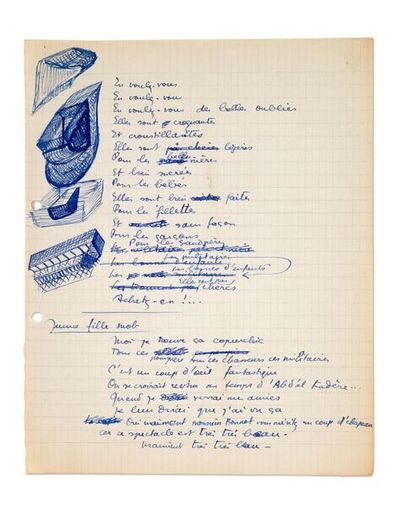 En voulez-vous
En voulez-vou
En voulez-vous des belles oublies
Elles sont croquantes
Et croustillantes
Elles sont légères
Pour les mères
Et bien sucrées
Pour les bébés
Elles sont bien faites
Pour la fillette
Et sans façon
Pour les garçons
Pour les grandpère
Les militaires
Les bonnes d'enfants
Elles sont pas chères
Achetez-en !...
Jeune fille snob
Moi je trouve ça
Tous ces pompiers ces chasseurs ces militaires
C'est un coup d'œil fantastique
On se croirait revenu au temps d'Abd'el Kadère...
Quand je verrai mes amies
je leur dirai que j'ai vu ça
Oui vraiment monsieur Bonnot vous méritez un coup d'chapeau
car ce spectacle est très très beau.
Vraiment très très beau.